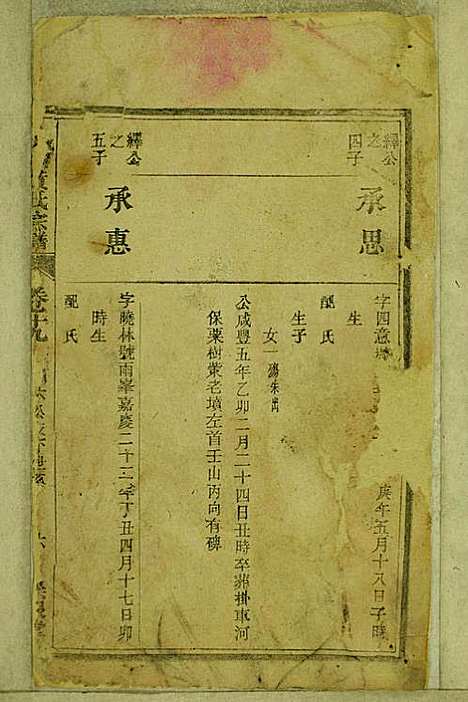 繹公之四子
承思
字四意
庚年五月十八日子時
生
配氏
生子
女一 殤 朱出
公咸豐五年乙卯二月二十四日丑時卒葬掛車河
保栗樹老墳左首壬山丙向有碑
繹公之五子
承惠
字曉林號雨峯嘉慶二十二年丁丑四月十七日卯
時生
配氏
氏宗譜
卷十九